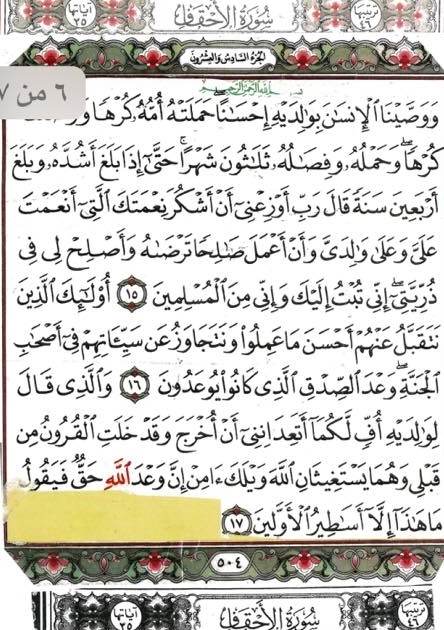 آياتها ٣٥ سُورَةُ الأَحْقَافِ ترتيبها ٤٦
الجزء السادس والعشرون
٦ من ٧
بِسْمِ ٱللَّهِ ٱلرَّحْمَٰنِ ٱلرَّحِيمِ
وَوَصَّيْنَا ٱلْإِنسَٰنَ بِوَٰلِدَيْهِ إِحْسَٰنًا حَمَلَتْهُ أُمُّهُۥ كُرْهًا
كُرْهًا وَحَمْلُهُۥ وَفِصَٰلُهُۥ ثَلَٰثُونَ شَهْرًا حَتَّىٰٓ إِذَا بَلَغَ أَشُدَّهُۥ وَبَلَغَ
أَرْبَعِينَ سَنَةً قَالَ رَبِّ أَوْزِعْنِىٓ أَنْ أَشْكُرَ نِعْمَتَكَ ٱلَّتِىٓ أَنْعَمْتَ
عَلَىَّ وَعَلَىٰ وَٰلِدَىَّ وَأَنْ أَعْمَلَ صَٰلِحًا تَرْضَىٰهُ وَأَصْلِحْ لِى فِى
ذُرِّيَّتِىٓ إِنِّى تُبْتُ إِلَيْكَ وَإِنِّى مِنَ ٱلْمُسْلِمِينَ ١٥ أُو۟لَٰٓئِكَ ٱلَّذِينَ
نَتَقَبَّلُ عَنْهُمْ أَحْسَنَ مَا عَمِلُوا۟ وَنَتَجَاوَزُ عَن سَيِّـَٔاتِهِمْ فِىٓ أَصْحَٰبِ
ٱلْجَنَّةِ وَعْدَ ٱلصِّدْقِ ٱلَّذِى كَانُوا۟ يُوعَدُونَ ١٦ وَٱلَّذِى قَالَ
لِوَٰلِدَيْهِ أُفٍّ لَّكُمَآ أَتَعِدَانِنِىٓ أَنْ أُخْرَجَ وَقَدْ خَلَتِ ٱلْقُرُونُ مِن
قَبْلِى وَهُمَا يَسْتَغِيثَانِ ٱللَّهَ وَيْلَكَ ءَامِنْ إِنَّ وَعْدَ ٱللَّهِ حَقٌّ فَيَقُولُ
مَا هَٰذَآ إِلَّآ أَسَٰطِيرُ ٱلْأَوَّلِينَ ١٧
٥٠٤
آياتها ٣٥ سُورَةُ الأَحْقَافِ ترتيبها ٤٦